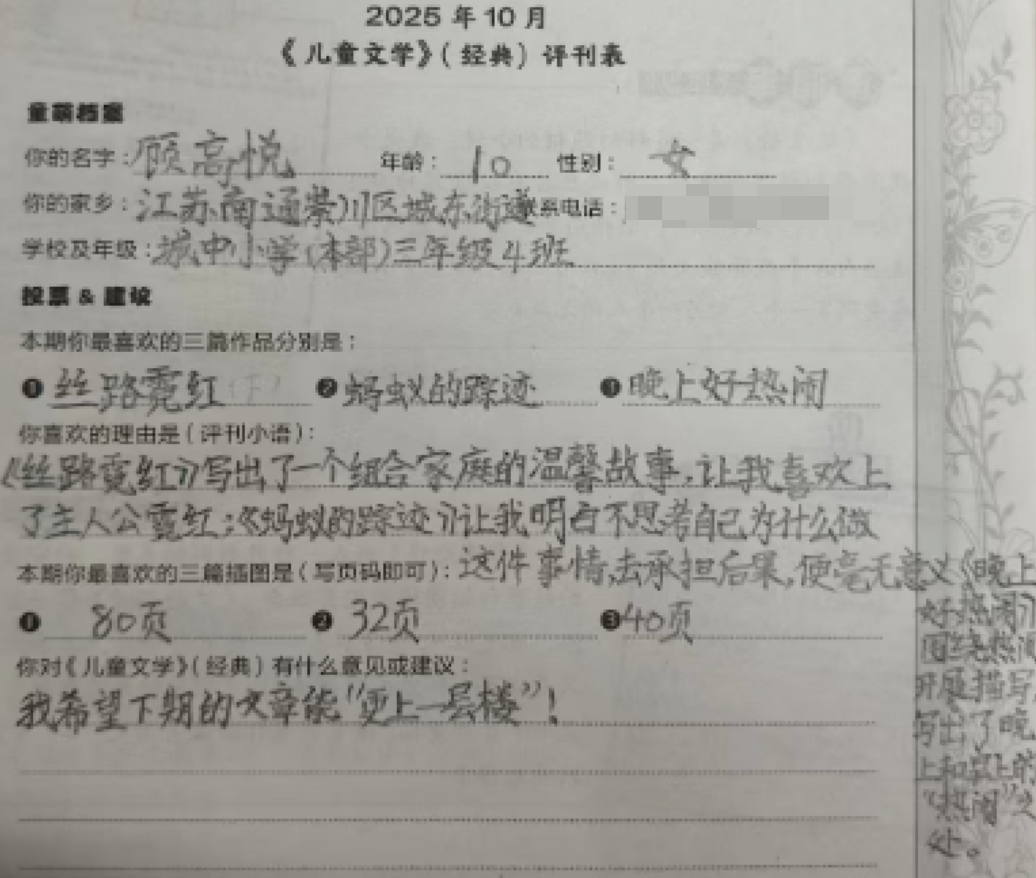 2025年10月
《儿童文学》(经典)评刊表
童萌档案
你的名字:顾高悦 年龄:10 性别:女
你的家乡:江苏南通崇川区城东街道联系电话:
学校及年级:城中小学(本部)三年级4班
投票&建议
本期你最喜欢的三篇作品分别是:
❶丝路霓红(下) ❷蚂蚁的踪迹 ❸晚上好热闹
你喜欢的理由是(评刊小语):
《丝路霓红》写出了一个组合家庭的温馨故事,让我喜欢上
了主人公霓红;《蚂蚁的踪迹》让我明白不思考自己为什么做
本期你最喜欢的三篇插图是(写页码即可):这件事情,去承担后果,便毫无意义《晚上
好热闹》
围绕热闹
开展描写
写出了晚
上和早上的
“热闹”之
处。
❶ 80页 ❷ 32页 ❸40页
你对《儿童文学》(经典)有什么意见或建议:
我希望下期的文章能“更上一层楼”!